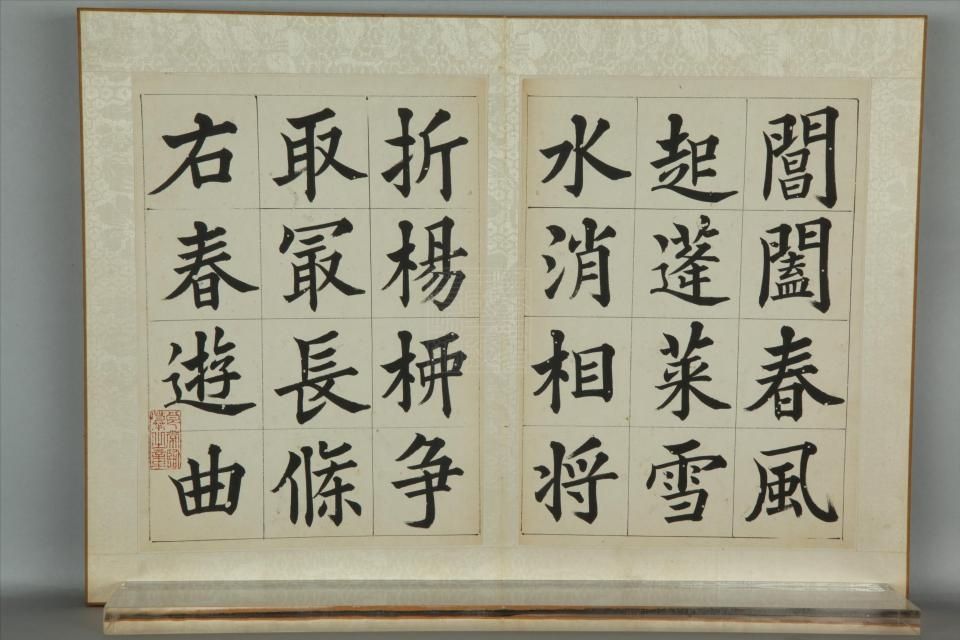 閶闔春風
起蓬萊雪
水消相将
折楊桺争
取冣長條
右春遊曲